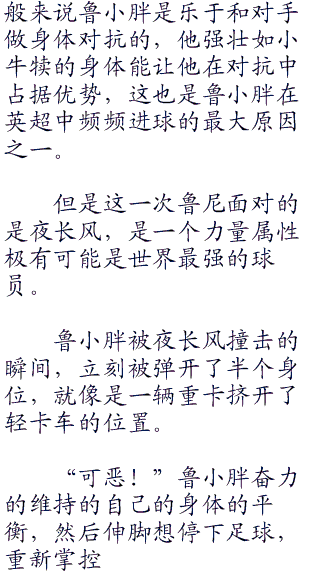 般来说鲁小胖是乐于和对手
做身体对抗的，他强壮如小
牛犊的身体能让他在对抗中
占据优势，这也是鲁小胖在
英超中频频进球的最大原因
之一。
但是这一次鲁尼面对的
是夜长风，是一个力量属性
极有可能是世界最强的球
员。
鲁小胖被夜长风撞击的
瞬间，立刻被弹开了半个身
位，就像是一辆重卡挤开了
轻卡车的位置。
“可恶！”鲁小胖奋力
的维持的自己的身体的平
衡，然后伸脚想停下足球，
重新掌控